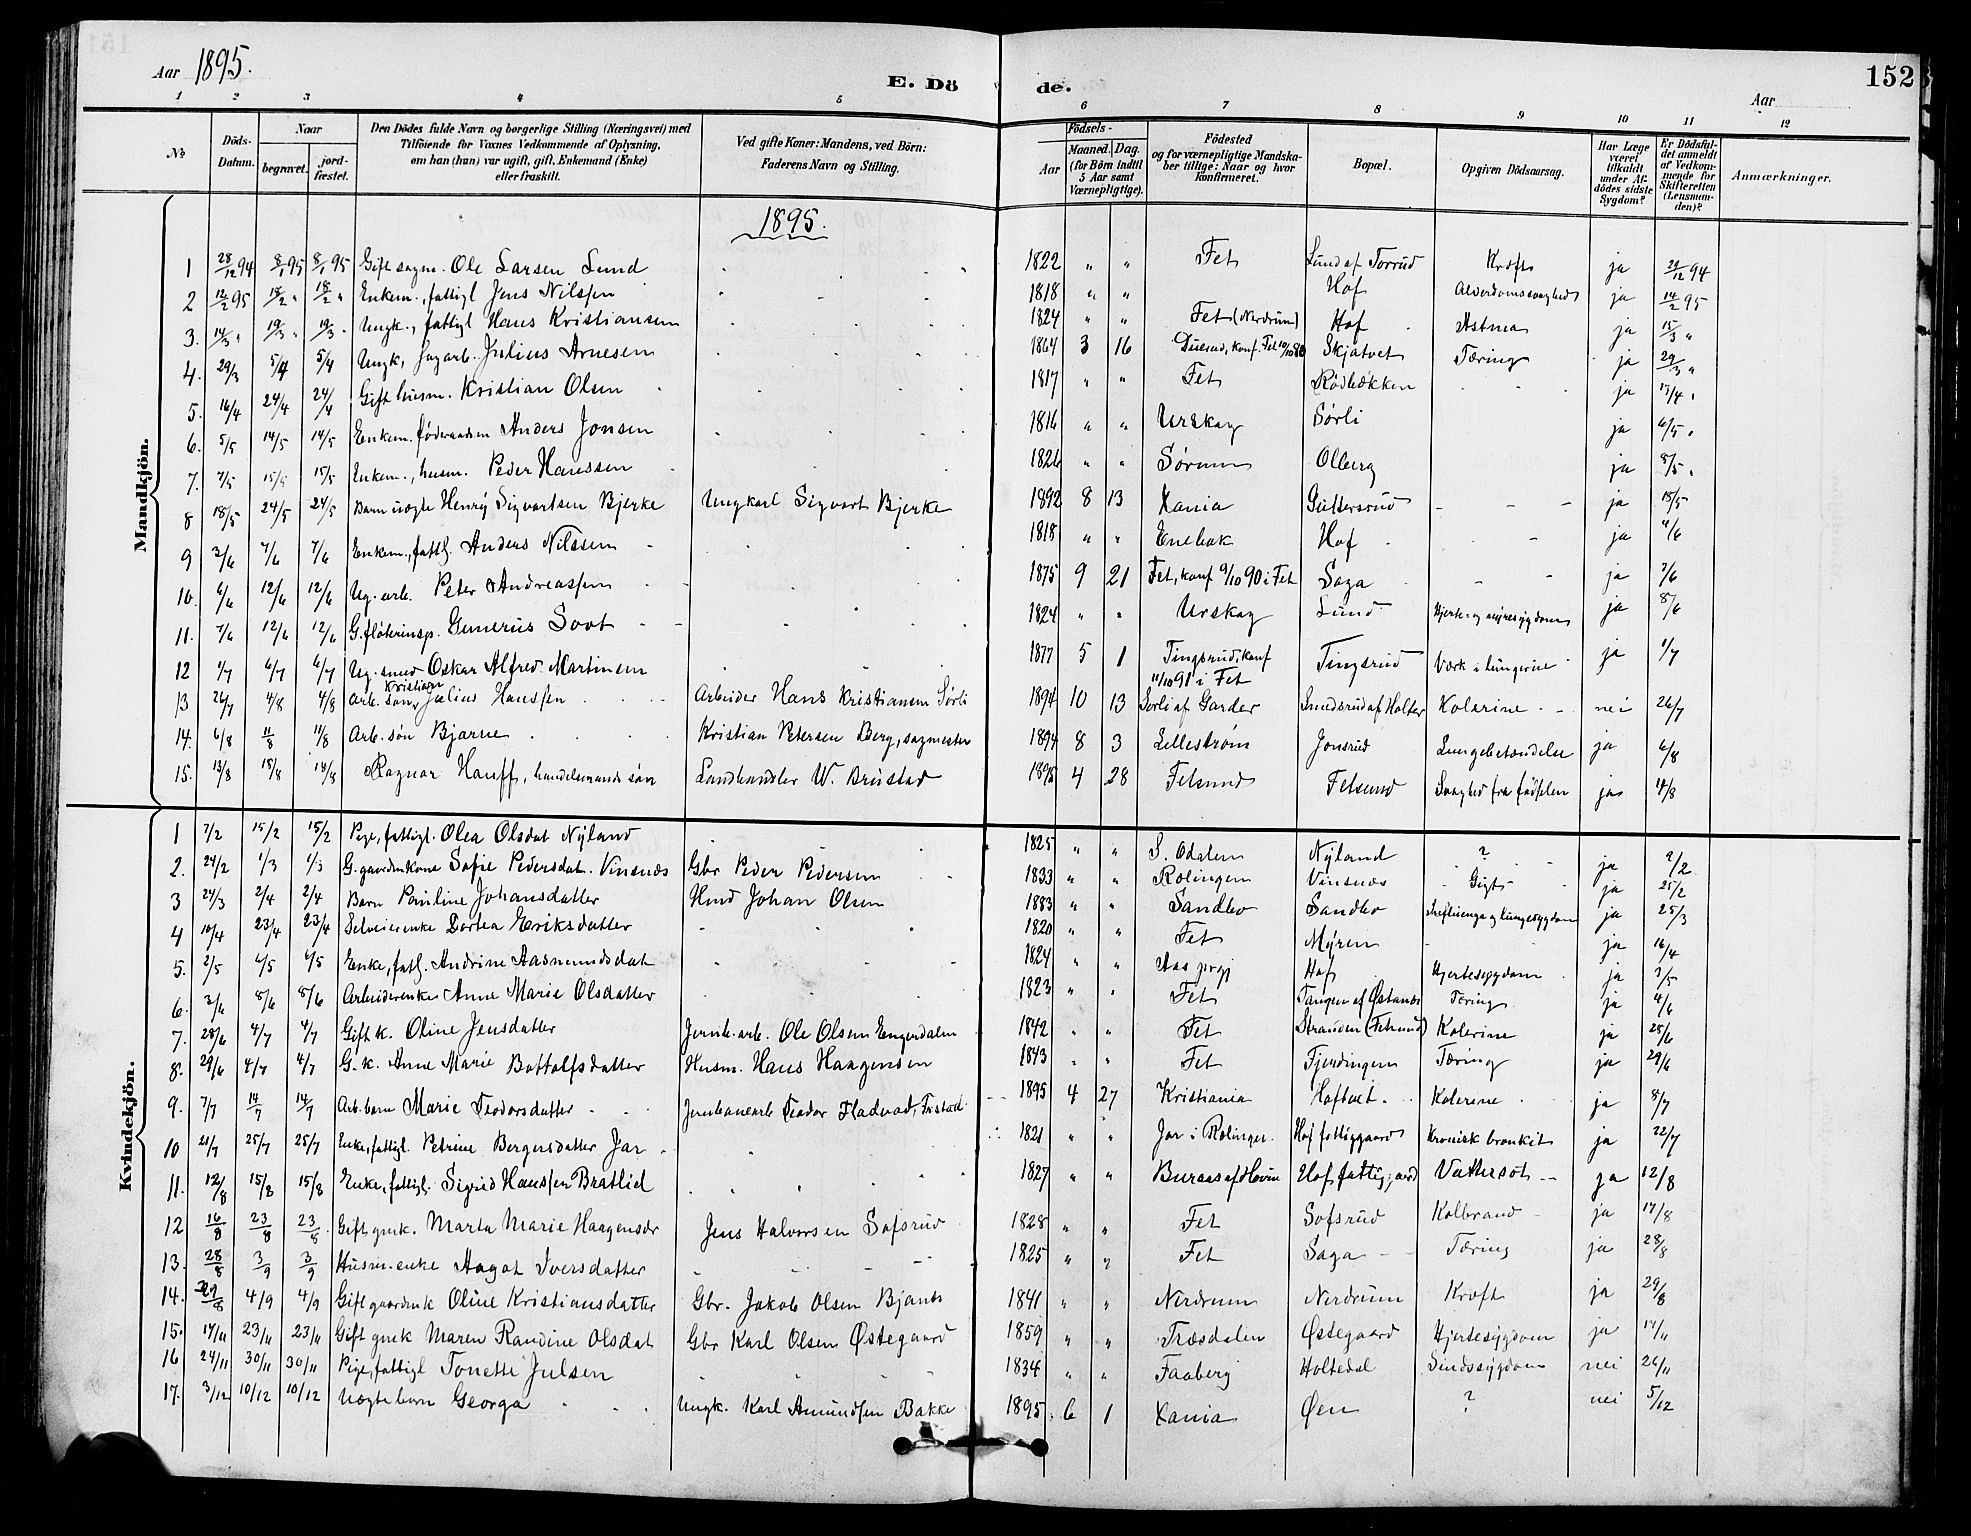 Aar 1895.
E. Dö de.
152
Aar
1 2 3 4 5 6 7 8 9 10 11 12
No
Döds-Datum.
Naar
begravet.
jord-fæstet.
Den Dödes fulde Navn og borgerlige Stilling (Næringsvei) med Tilföiende for Voxnes Vedkommende af Oplysning, om han (hun) var ugift, gift, Enkemand (Enke) eller fraskilt.
Ved gifte Koner: Mandens, ved Börn: Faderens Navn og Stilling.
Födsels-
Aar
Maaned. Dag.
(for Börn indtil 5 Aar samt Værnepligtige).
Födested og for værnepligtige Mandskaber tillige: Naar og hvor konfirmeret.
Bopæl.
Opgiven Dödsaarsag.
Har Læge været tilkaldt under Afdödes sidste Sygdom?
Er Dödsfaldet anmeldt af Vedkommende for Skifteretten (Lensmanden)?
Anmærkninger.
Mandkjön.
1895.
1 28/12 94 8/1 95 8/1 95 Gift sagm. Ole Larsen Lund 1822 " " Fet Lund af Torrud Kræft ja 29/12 94
2 12/2 95 18/2 " 18/2 " Enkem., fattigl Jens Nilsen 1818 " " Hof Alderdomssvaghed ja 14/2 95
3. 14/3 " 19/3 " 19/3 " Ungk., fattigl Hans Kristiansen 1824 " " Fet (Nerdrum) Hof Astma ja 15/3 "
4. 29/3 5/4 5/4 Ungk, sagarb. Julius Arnesen 1864 3 16 Duerud, konf. Fet 10/10 80 Skjatvet Tæring ja 29/3 "
5. 16/4 24/4 24/4 Gift husm. Kristian Olsen 1817 " " Fet Rödbökken ja 17/4 "
6. 5/5 14/5 14/5 Enkem. föderaadsm Anders Jonsen 1816 " " Urskog Sörli ja 6/5 "
7. 7/5 15/5 15/5 Enkem., husm. Peder Hanssen 1826 " " Sörum Olberg ja 8/5 "
8 18/5 24/5 24/5 Barn uægte Henry Sigvartsen Bjerke Ungkarl Sigvart Bjerke 1892 8 13 Xania Guttersrud - - - ja 18/5
9 3/6 7/6 7/6 Enkem., fattl. Anders Nilssen 1818 " " Enebak Hof ja 4/6
10. 6/6 12/6 12/6 Ug. arb. Peter Andreassen 1875 9 21 Fet, konf 9/10 90 i Fet Saga - - ja 7/6
11. 7/6 12/6 12/6 G. flöterinsp. Generus Soot 1824 " " Urskog Lund Hjerte- og nyresygdom ja 8/6
12 1/7 6/7 6/7 Ug. smed Oskar Alfred Martinsen 1877 5 1 Tingsrud, konf 11/10 91 i Fet Tingsrud Værk i lungerne ja 1/7
13 26/7 4/8 4/8 Arb. sön Kristian Julius Hanssen Arbeider Hans Kristiansen Sörli 1894 10 13 Sorli af Garder Smedsrud af Holter Kolerine nei 26/7
14. 6/8 11/8 11/8 Arb. sön Bjarne Kristian Petersen Berg, sagmester 1894 8 3 Lilleström Jonsrud Lungebetændelse ja 6/8
15. 13/8 18/8 18/8 Ragnar Hauff, handelsmands sön Landhandler W. Brustad 1895 4 28 Fetsund Fetsund Svaghed fra födselen ja 14/8
Kvindekjön.
1 7/2 15/2 15/2 Pige, fattigl. Olea Olsdat Nyland 1825 " " S. Odalen Nyland ? ja 9/2
2. 24/2 1/3 1/3 G. gaardmkone Sofie Pedersdat. Vinsnæs Gbr Peder Pedersen 1833 " " Rælingen Vinsnæs Gigt ja 25/2
3 24/3 2/4 2/4 Barn Pauline Johansdatter Hmd Johan Olsen 1883 " " Sandbo Sandbo Influenza og lungesygdom ja 25/3
4 10/4 23/4 23/4 Selveierenke Dortea Eriksdatter 1820 " " Fet Myren ja 16/4
5. 2/5 6/5 6/5 Enke, fatl. Andrine Aasmundsdat 1824 " " Aas prgj Hof Hjertesygdom ja 3/5
6. 3/6 8/6 8/6 Arbeiderenke Anne Marie Olsdatter 1823 " " Fet Tangen af Östanes Tæring ja 4/6
7. 28/6 4/7 4/7 Gift k. Oline Jensdatter Jernb. arb. Ole Olsen Engerdalen 1842 " " Fet Stranden (Fetsund) Kolerine ja 28/6
8. 29/6 4/7 4/7 G. k. Anne Marie Bottolfsdatter Husm. Hans Haagensen 1843 " " Fet Fjerdingen Tæring ja 29/6
9. 7/7 14/7 14/7 Arb. barn Marie Teodorsdatter Jernbanearb Teodor Fladvad, Tristad 1895 4 27 Kristiania Hoftvet Kolerine ja 8/7
10 21/7 25/7 25/7 Enke, fattigl Petrine Bergersdatter Jar 1821 " " Jar i Rælingen Hof fattiggaard Kronisk bronkit ja 22/7
11. 12/8 15/8 15/8 Enke, fattigl. Sigrid Hanssen Bratlid 1827 " " Buraas af Hovin Hof fattiggaard Vattersot ja 12/8
12 16/8 23/8 23/8 Gift gmk. Marta Marie Haagensdr Jens Halvorsen Sofsrud 1828 " " Fet Sofsrud Kolbrand ja 17/8
13. 28/8 3/9 3/9 Husm. enke Aagot Iversdatter 1825 " " Fet Saga Tæring ja 28/8
14. 29/8 4/9 4/9 Gift gaardmk Oline Kristiansdatter Gbr. Jakob Olsen Bjanes 1841 " " Nerdrum Nerdrum Kræft ja 29/8
15. 17/11 23/11 23/11 Gift gmk Maren Randine Olsdat Gbr Karl Olsen Östegaard 1859 " " Træsdalen Östegaard Hjertesygdom ja 17/11
16 24/11 30/11 30/11 Pige, fattigl Tonette Julsen 1834 " " Faaberg Holtedal Sindssygdom nei 26/11
17. 3/12 10/12 10/12 Uægte barn Georga Ungk. Karl Amundsen Bakke 1895 6 1 Xania Öen ? nei 5/12